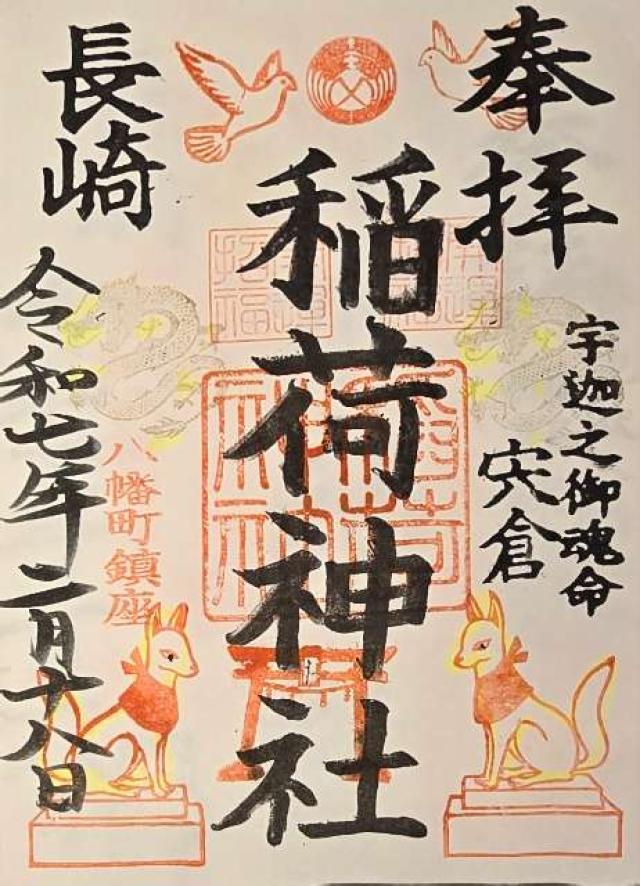 奉拝
宇迦之御魂命
宍倉
稲荷神社
開運
招福
八幡町鎮座
長崎
令和七年二月十八日